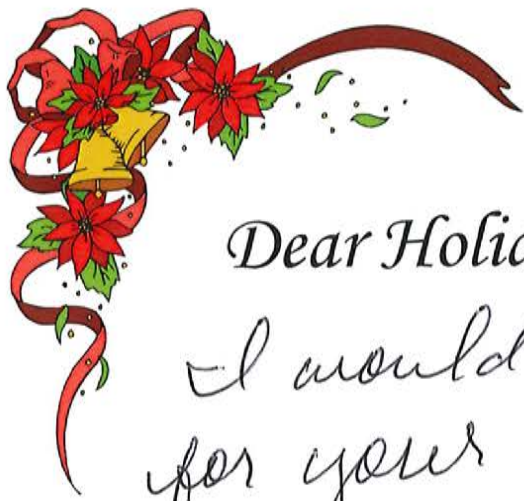 Dear Holid
I would
for your